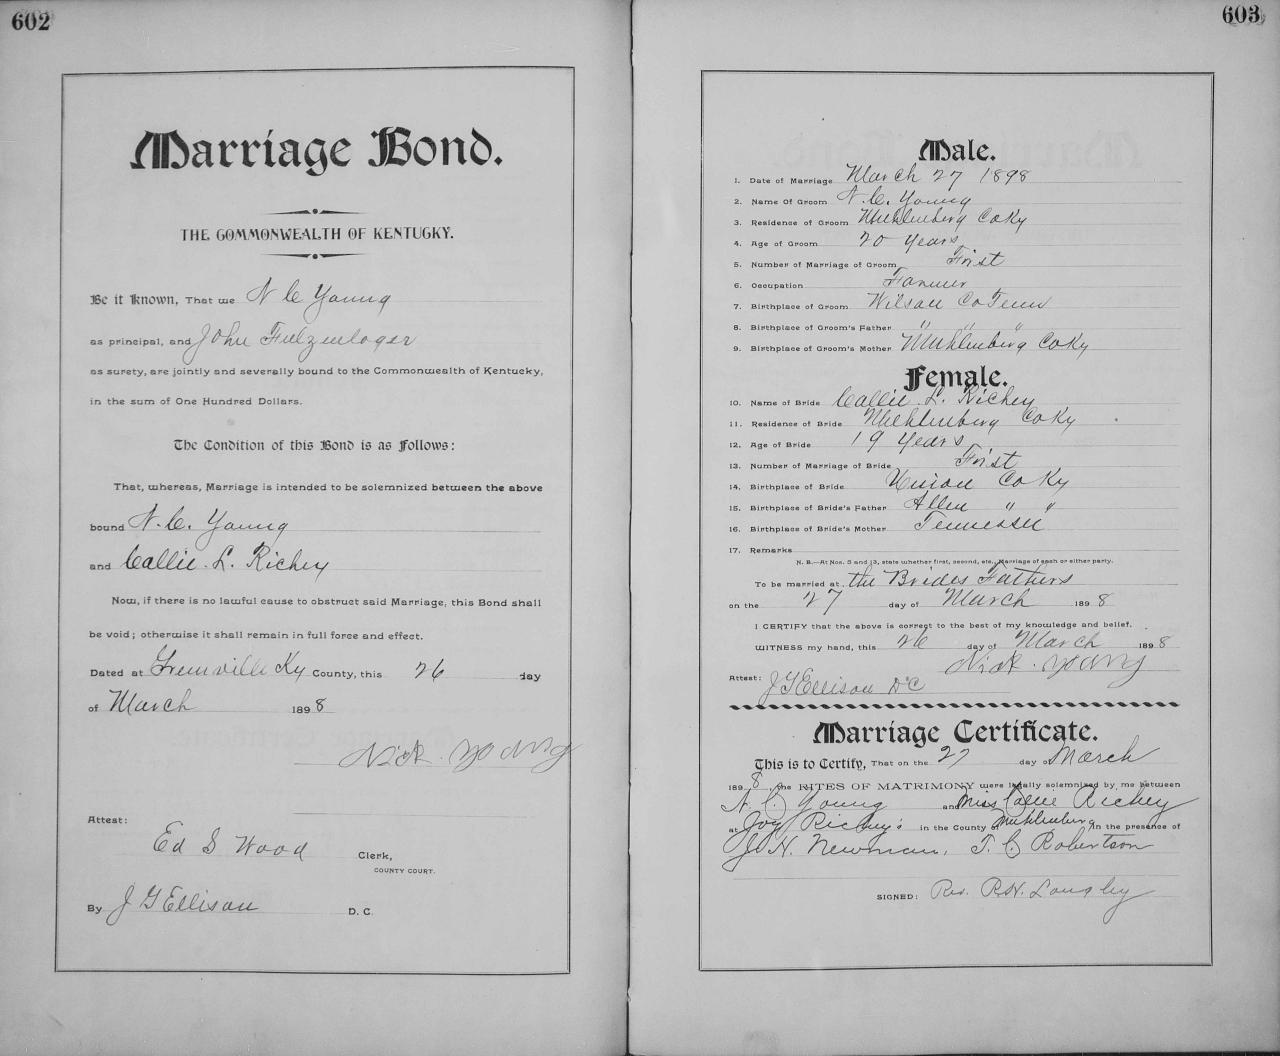 602
Marriage Bond.
THE COMMONWEALTH OF KENTUCKY.
Be it Known, That we N C Young
as principal, and John
as surety, are jointly and severally bound to the Commonwealth of Kentucky,
in the sum of One Hundred Dollars.
The Condition of this Bond is as Follows:
That, whereas, Marriage is intended to be solemnized between the above
bound N. C. Young
and Callie. L. Richey
Now, if there is no lawful cause to obstruct said Marriage, this Bond shall
be void; otherwise it shall remain in full force and effect.
Dated at Greenville Ky County, this 26 day
of March 1898
Nick. Young
Attest:
Ed S Wood Clerk,
COUNTY COURT.
By J G Ellison D. C.
603
Male.
1. Date of Marriage March 27 1898
2. Name Of Groom N. C. Young
3. Residence of Groom Muhlenberg Co Ky
4. Age of Groom 20 Years
5. Number of Marriage of Groom Frist
6. Occupation Farmer
7. Birthplace of Groom Wilson Co Tenn
8. Birthplace of Groom's Father " " "
9. Birthplace of Groom's Mother Muhlenberg Co Ky
Female.
10. Name of Bride Callie. L. Richey
11. Residence of Bride Muhlenberg Co Ky
12. Age of Bride 19 Years
13. Number of Marriage of Bride Frist
14. Birthplace of Bride Union Co Ky
15. Birthplace of Bride's Father Allen " "
16. Birthplace of Bride's Mother Tennessee
17. Remarks
N. B.—At Nos. 5 and 13, state whether first, second, etc., Marriage of each or either party.
To be married at the Brides Fathers
on the 27 day of March 1898
I CERTIFY that the above is correct to the best of my knowledge and belief.
WITNESS my hand, this 26 day of March 1898
Nick. Young
Attest: J G Ellison DC
Marriage Certificate.
This is to Certify, That on the 27 day of March
1898, the RITES OF MATRIMONY were legally solemnized by me between
N. C. Young and Miss Callie Richey
at Joy Richey's in the County of Muhlenberg in the presence of
J. H. Newman, T. C. Robertson
SIGNED: Rev. R. H. Longley